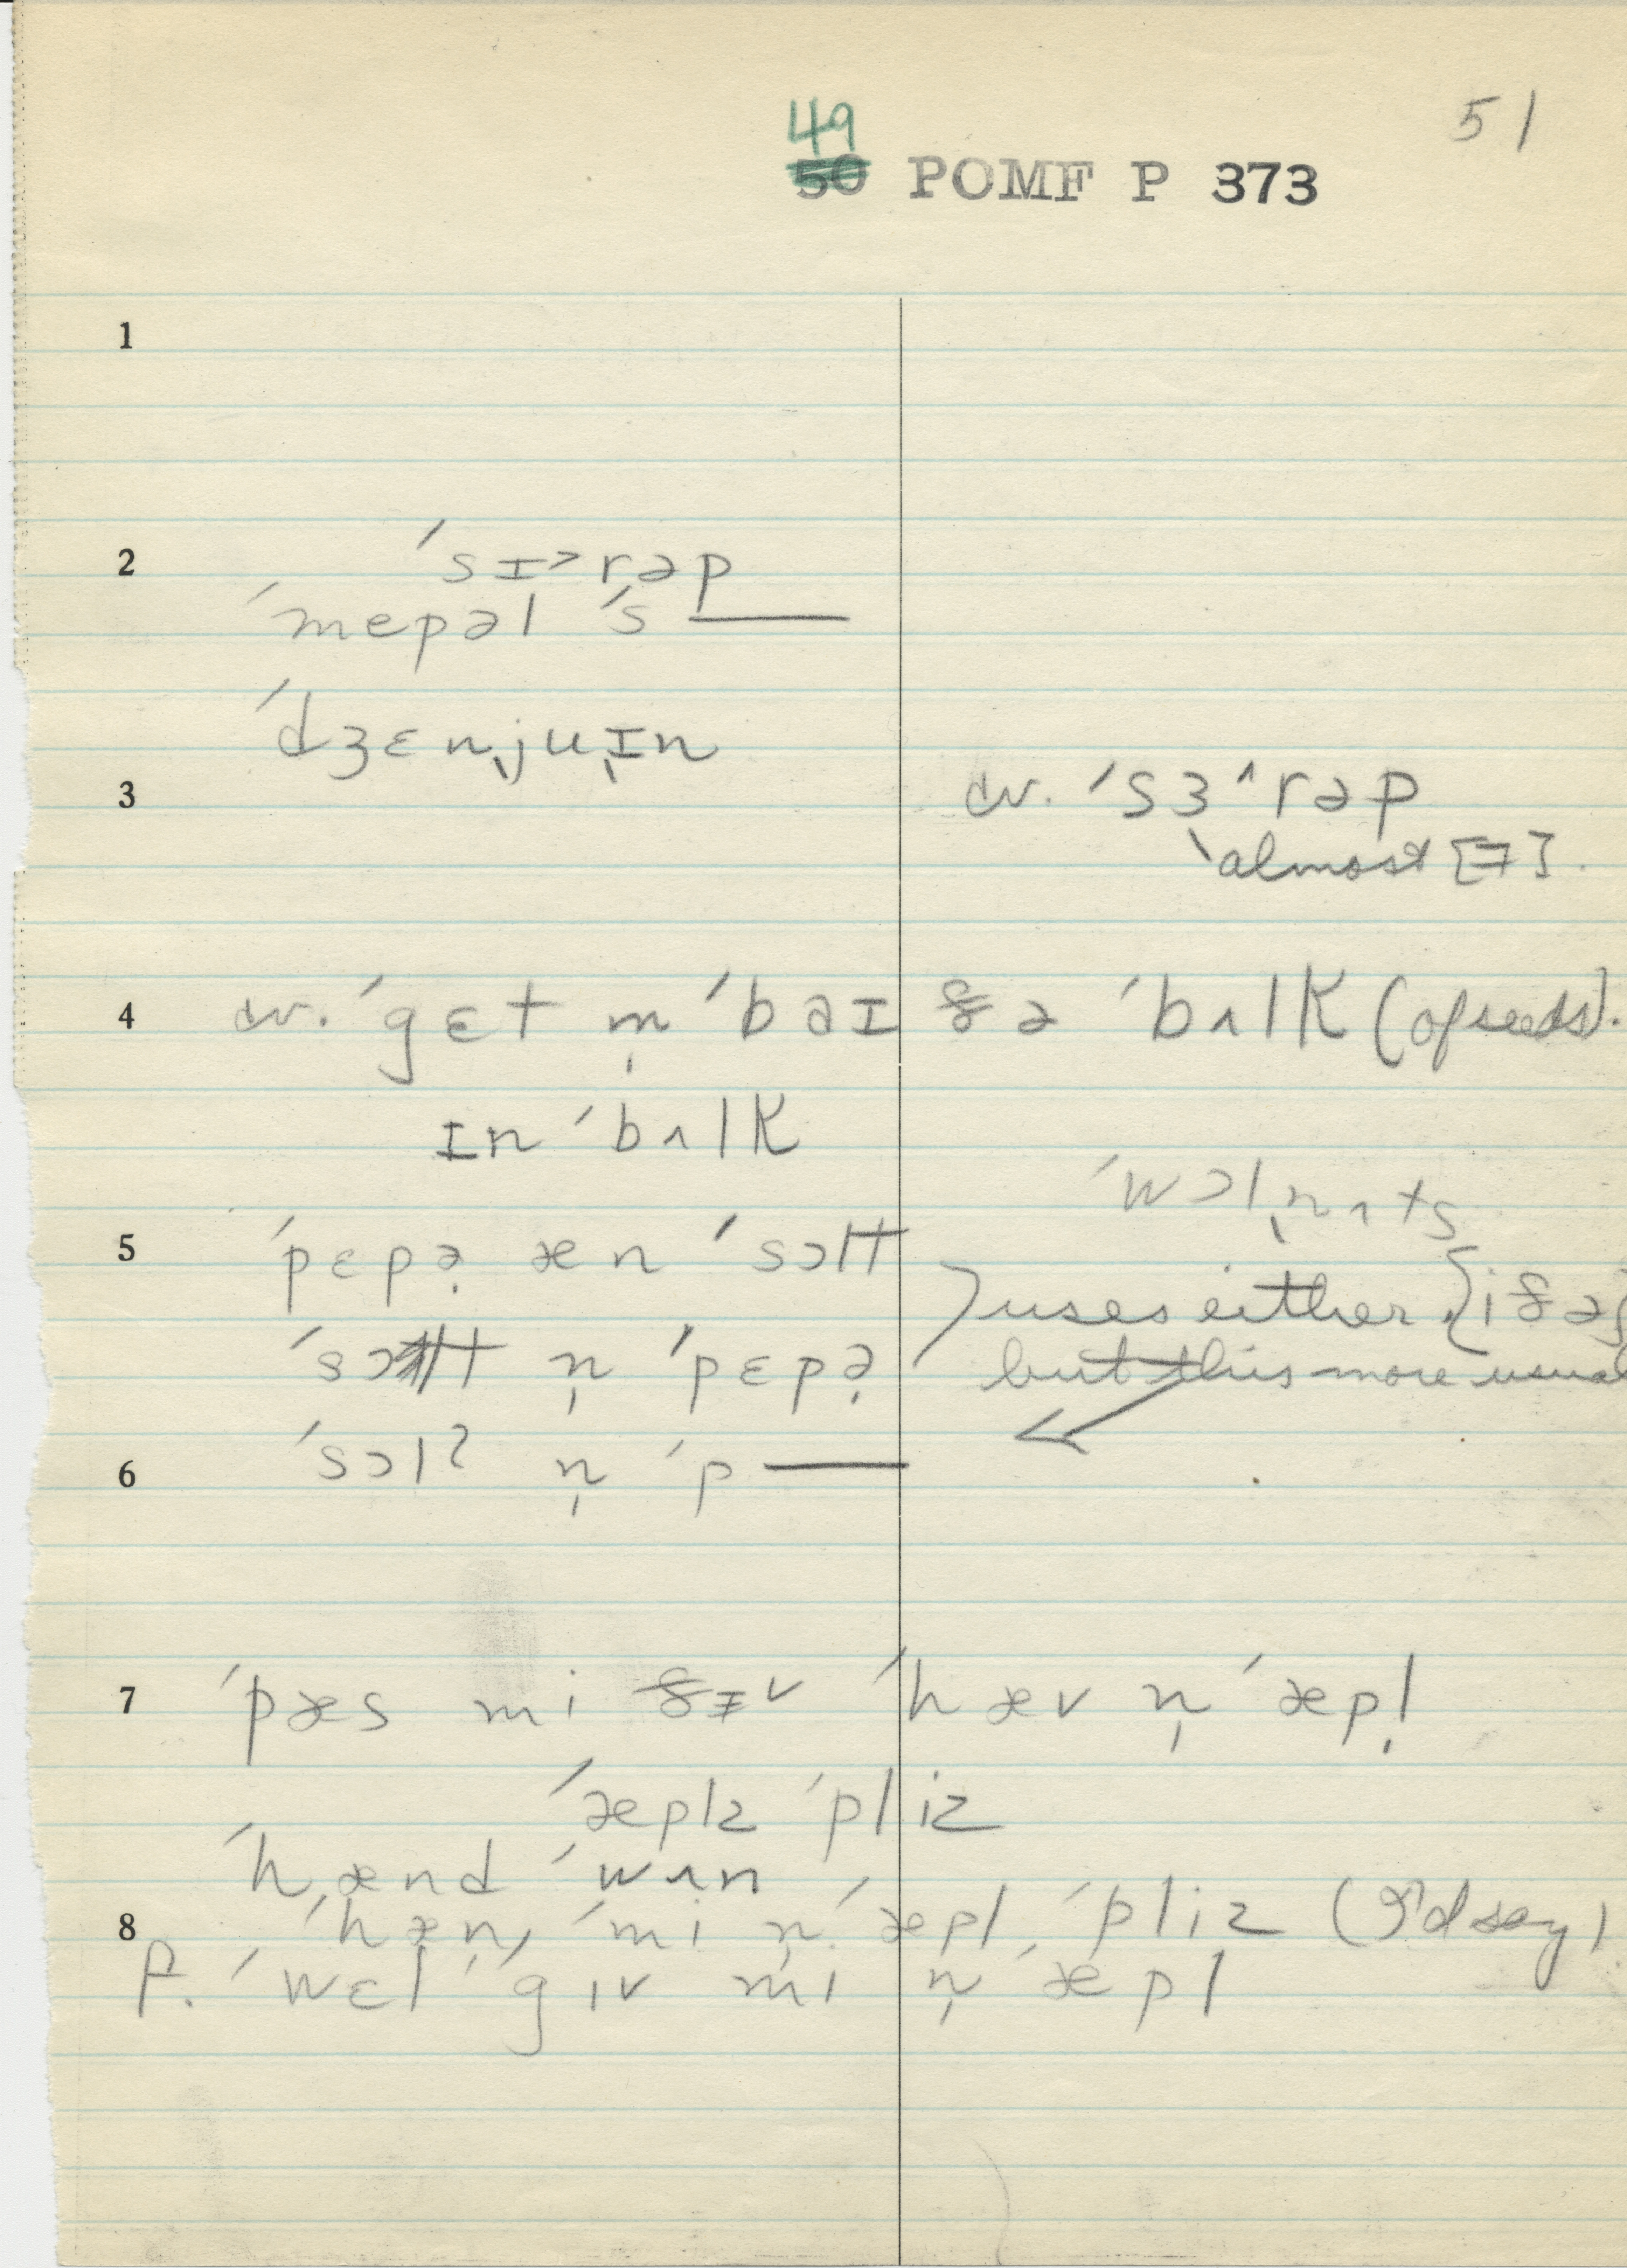 51
49
50 POMF P 373
1
2 ˈsɪ˃rəp
ˈmepəl ˈs——
ˈdʒɛnjuɪn
3 cv. ˈsɜ˄rəp
almost [ɘ].
4 cv. ˈgɛt m̩ ˈbəɪ ðə ˈbʌlk (of seeds).
ɪn ˈbʌlk
ˈwɔlnʌts
5 ˈpɛpə̣ æn ˈsɔlt
uses either {iðə}
ˈsɔlt n̩ ˈpɛpə̣
but this more usual
6 ˈsɔlʔ n̩ ˈp——
7 ˈpæs mi ðɪ˅ ˈhæv n̩ ˈæpl̩
ˈæplz ˈpliz
ˈhænd ˈwʌn
8 ˈhæn ˈmi n̩ ˈæpl ˈpliz (I'd say)
P. ˈwɛl ˈgɪv mi n̩ ˈæpl